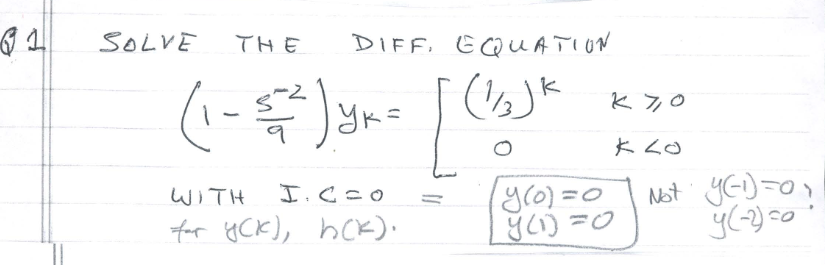 Q1 SOLVE THE DIFF. EQUATION
(1 - s^-2/9) yk = [ (1/3)^k k ≥ 0
0 k < 0
WITH I.C = 0 = y(0) = 0 Not y(-1) = 0,
for y(k), h(k). y(1) = 0 y(-2) = 0